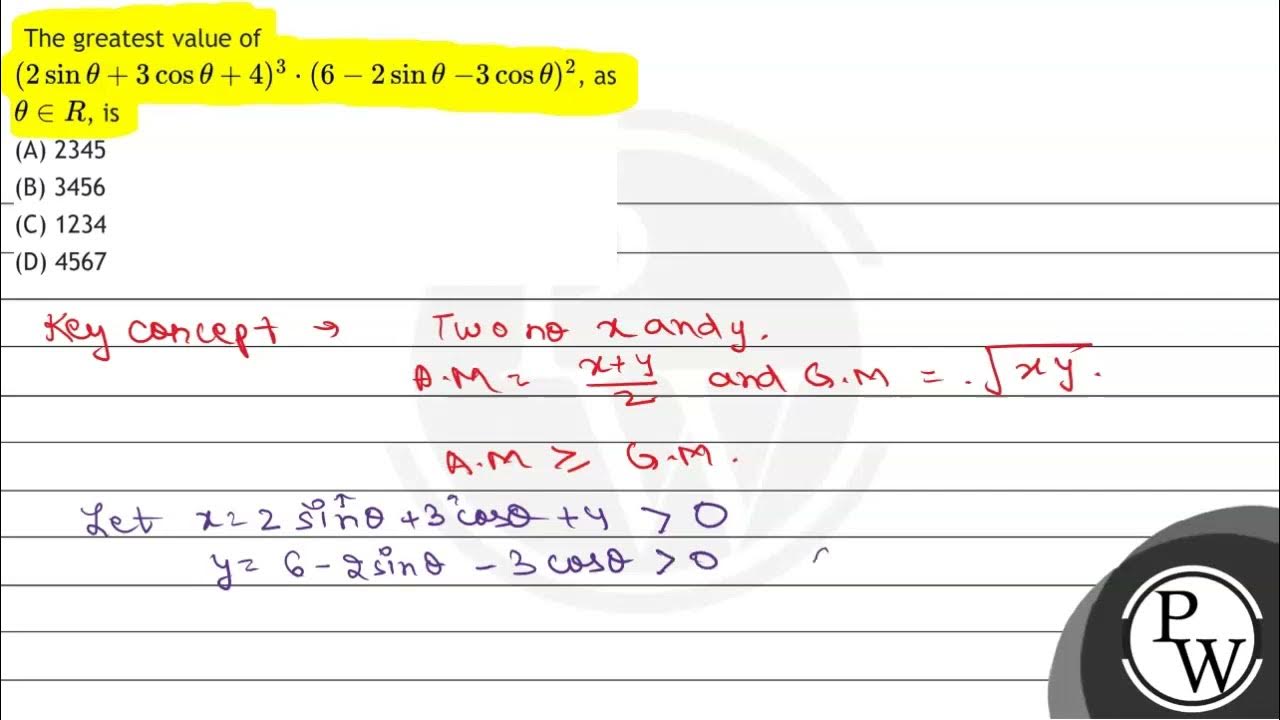 The greatest value of
(2 sin θ + 3 cos θ + 4)³ · (6 − 2 sin θ −3 cos θ)², as
θ ∈ R, is
(A) 2345
(B) 3456
(C) 1234
(D) 4567
Key concept → Two no x and y.
A.M = x+y/2 and G.M = .√xy.
A.M ≥ G.M.
Let x = 2 sinθ + 3 cosθ + 4 > 0
y = 6 − 2 sinθ − 3 cosθ > 0
P
W